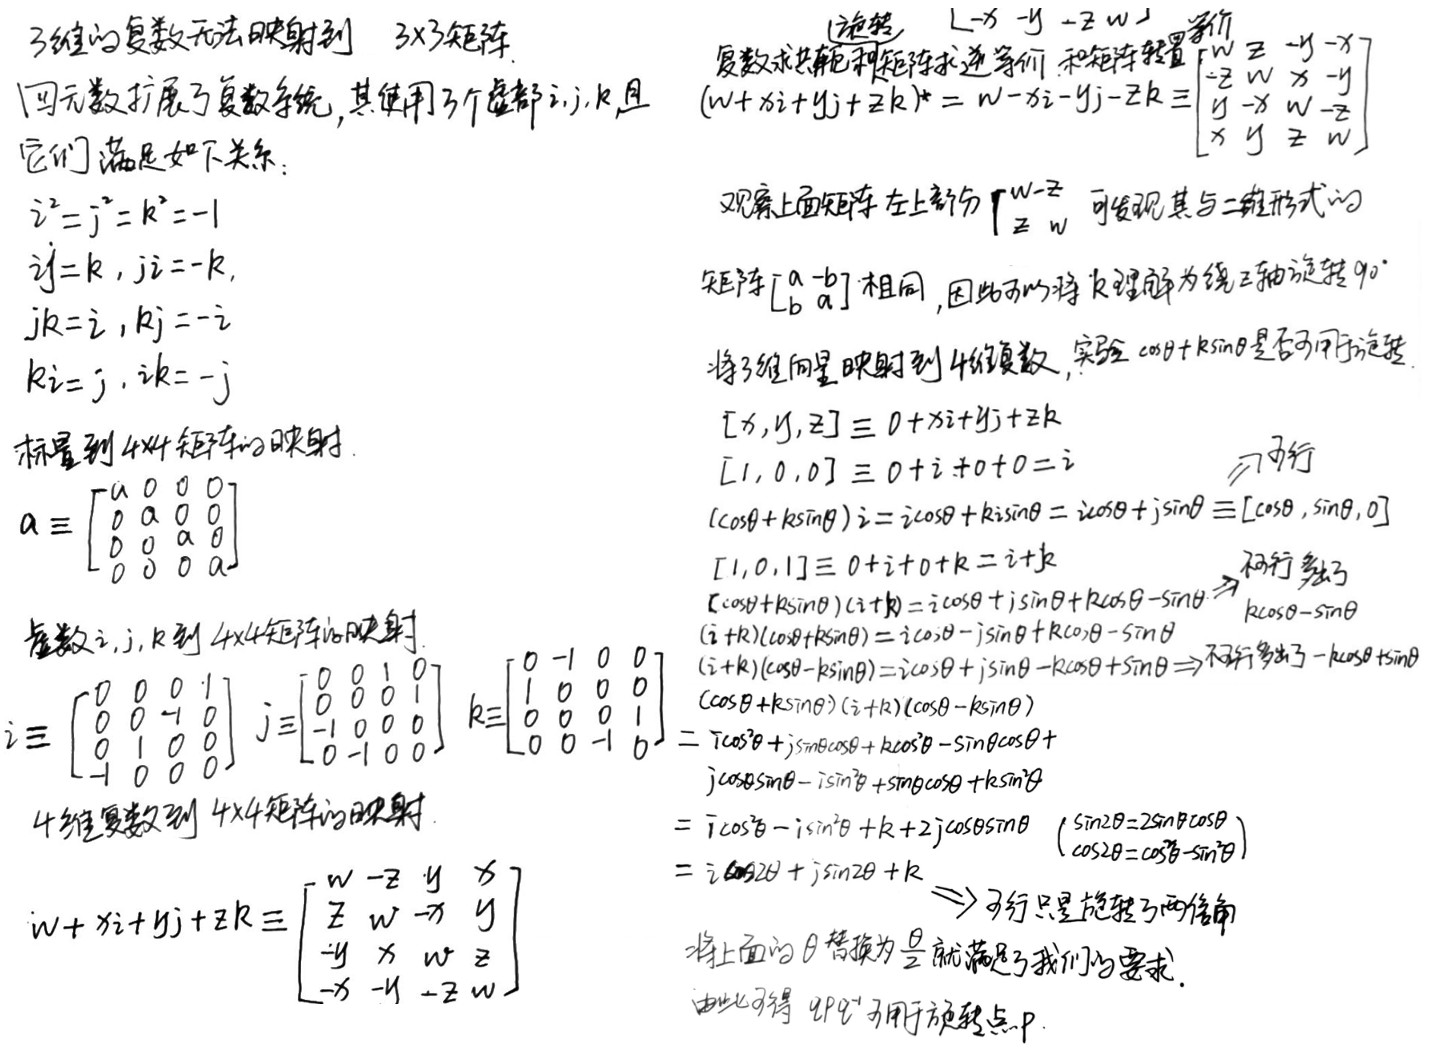 3维的复数无法映射到 3×3矩阵.
四元数扩展了复数系统,其使用3个虚部i,j,k,且
它们满足如下关系:
i²=j²=k²=-1
ij=k, ji=-k,
jk=i, kj=-i
ki=j, ik=-j
标量到4×4矩阵的映射.
a ≡ [a 0 0 0
0 a 0 0
0 0 a 0
0 0 0 a]
虚数i,j,k到4×4矩阵的映射.
i ≡ [0 0 0 1
0 0 -1 0
0 1 0 0
-1 0 0 0]
j ≡ [0 0 1 0
0 0 0 1
-1 0 0 0
0 -1 0 0]
k ≡ [0 -1 0 0
1 0 0 0
0 0 0 1
0 0 -1 0]
4维复数到4×4矩阵的映射.
w+xi+yj+zk ≡ [w -z y x
z w -x y
-y x w z
-x -y -z w]
-x -y -z w]
旋转
复数求共轭和矩阵求逆等价 和矩阵转置等价
(w+xi+yj+zk)* = w-xi-yj-zk ≡ [w z -y -x
-z w x -y
y -x w -z
x y z w]
观察上面矩阵左上部分 [w -z
z w 可发现其与二维形式的
矩阵[a -b
b a]相同,因此可以将k理解为绕z轴旋转90°
将3维向量映射到4维复数,实验cosθ+ksinθ是否可用于旋转.
[x,y,z] ≡ 0+xi+yj+zk
[1,0,0] ≡ 0+i+0+0=i
⇒可行
(cosθ+ksinθ)i=icosθ+kisinθ=icosθ+jsinθ≡[cosθ,sinθ,0]
[1,0,1]≡0+i+0+k=i+k
(cosθ+ksinθ)(i+k)=icosθ+jsinθ+kcosθ-sinθ ⇒ 不可行 多出了
kcosθ-sinθ
(i+k)(cosθ+ksinθ)=icosθ-jsinθ+kcosθ-sinθ
(i+k)(cosθ-ksinθ)=icosθ+jsinθ-kcosθ+sinθ⇒不可行多出了-kcosθ+sinθ
(cosθ+ksinθ)(i+k)(cosθ-ksinθ)
= icos²θ+jsinθcosθ+kcos²θ-sinθcosθ+
jcosθsinθ-isin²θ+sinθcosθ+ksin²θ
= icos²θ-isin²θ+k+2jcosθsinθ (sin2θ=2sinθcosθ
cos2θ=cos²θ-sin²θ)
= icos2θ+jsin2θ+k
⇒可行只是旋转了两倍角
将上面的θ替换为θ/2就满足了我们的要求.
由此可得 qpq⁻¹可用于旋转点p.